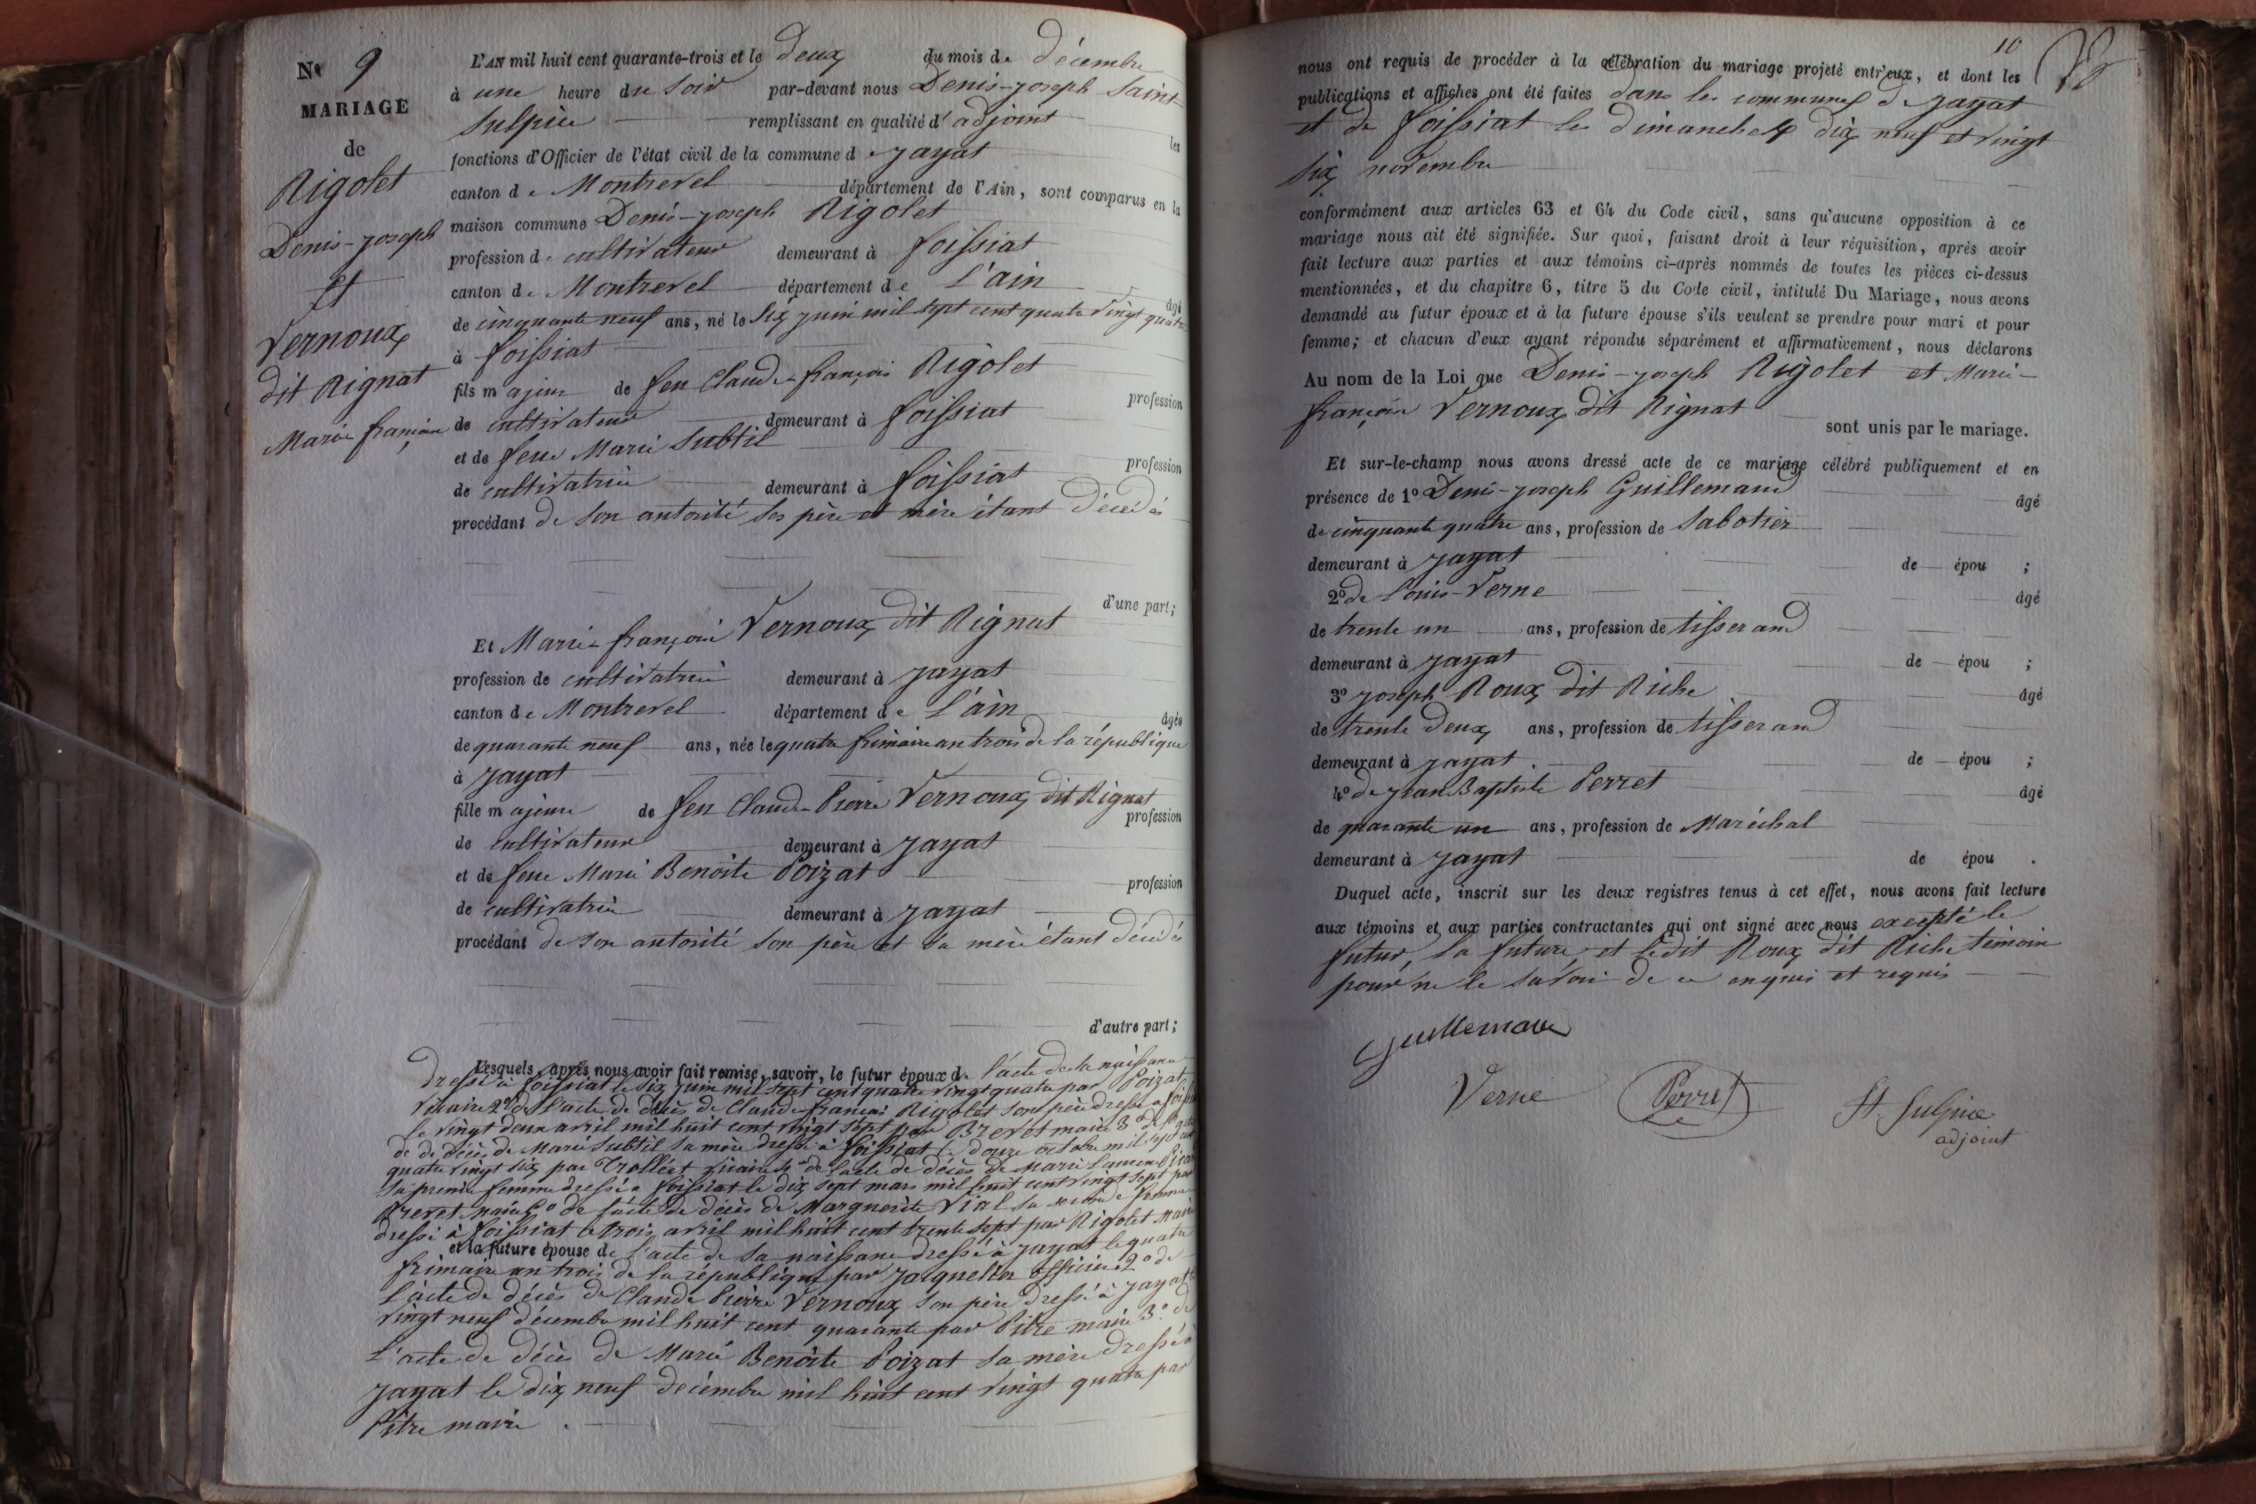 N° 9
MARIAGE
de
Rigolet
Denis-joseph
et
Vernoux
dit Rignat
Marie françoise
L'AN mil huit cent quarante-trois et le deux du mois de décembre
à une heure du soir par-devant nous Denis-joseph Saint-
Sulpice remplissant en qualité d'adjoint les
fonctions d'Officier de l'état civil de la commune de jayat
canton de Montrevel département de l'Ain, sont comparus en la
maison commune Denis-joseph Rigolet
profession de cultivateur demeurant à foissiat
canton de Montrevel département de L'ain âgé
de cinquante neuf ans, né le Six juin mil sept cent quatre vingt quatre
à foissiat
fils majeur de feu Claude-françois Rigolet profession
de cultivateur demeurant à foissiat
et de feue Marie Subtil profession
de cultivatrice demeurant à foissiat
procédant de son autorité ses père et mère étant décédés
d'une part;
Et Marie françoise Vernoux dit Rignat
profession de cultivatrice demeurant à jayat
canton de Montrevel département de L'ain âgée
de quarante neuf ans, née le quatre frimaire an trois de la république
à jayat
fille majeure de feu Claude-Pierre Vernoux dit Rignat profession
de cultivateur demeurant à jayat
et de feue Marie Benoite Poizat profession
de cultivatrice demeurant à jayat
procédant de son autorité son père et sa mère étant décédés
d'autre part;
Lesquels, après nous avoir fait remise, savoir, le futur époux de l'acte de sa naissance
dressé à foissiat le six juin mil sept cent quatre vingt quatre par Poizat
vicaire 2° de l'acte de décès de Claude-françois Rigolet son père dressé à foissiat
le vingt deux avril mil huit cent vingt sept par Brevet maire 3° de l'acte
de décès de Marie Subtil sa mère dressé à foissiat le douze octobre mil sept cent
quatre vingt six par Trolliet vicaire 4° de l'acte de décès de Marie
sa première femme dressé à foissiat le dix sept mars mil huit cent vingt sept par
Brevet maire 5° de l'acte de décès de Marguerite Vial sa seconde femme
dressé à foissiat le trois avril mil huit cent trente sept par Rigolet maire
et la future épouse de l'acte de sa naissance dressé à jayat le quatre
frimaire an trois de la république par officier 2° de
L'acte de décès de Claude Pierre Vernoux son père dressé à jayat le
vingt neuf décembre mil huit cent quarante par Pitre maire 3° de
L'acte de décès de Marie Benoite Poizat sa mère dressé à
jayat le dix neuf décembre mil huit cent vingt quatre par
Pitre maire.
10
nous ont requis de procéder à la célébration du mariage projeté entr'eux, et dont les
publications et affiches ont été faites dans les communes de jayat
et de foissiat les dimanches dix neuf et vingt
six novembre
conformément aux articles 63 et 64 du Code civil, sans qu'aucune opposition à ce
mariage nous ait été signifiée. Sur quoi, faisant droit à leur réquisition, après avoir
fait lecture aux parties et aux témoins ci-après nommés de toutes les pièces ci-dessus
mentionnées, et du chapitre 6, titre 5 du Code civil, intitulé Du Mariage, nous avons
demandé au futur époux et à la future épouse s'ils veulent se prendre pour mari et pour
femme; et chacun d'eux ayant répondu séparément et affirmativement, nous déclarons
Au nom de la Loi que Denis-joseph Rigolet et Marie-
françoise Vernoux dit Rignat
sont unis par le mariage.
Et sur-le-champ nous avons dressé acte de ce mariage célébré publiquement et en
présence de 1° Denis-joseph Guillemaud âgé
de cinquante quatre ans, profession de Sabotier
demeurant à jayat de épou ;
2° de Louis-Verne âgé
de trente un ans, profession de tisserand
demeurant à jayat de épou ;
3° joseph Roux dit Riche âgé
de trente deux ans, profession de tisserand
demeurant à jayat. de épou ;
4° de jean Baptiste Perret âgé
de quarante un ans, profession de Maréchal
demeurant à jayat de épou .
Duquel acte, inscrit sur les deux registres tenus à cet effet, nous avons fait lecture
aux témoins et aux parties contractantes qui ont signé avec nous excepté le
futur, la future et ledit Roux dit Riche témoin
pour ne le savoir de ce enquis et requis
Guillemaud
Verne Perret St Sulpice
adjoint